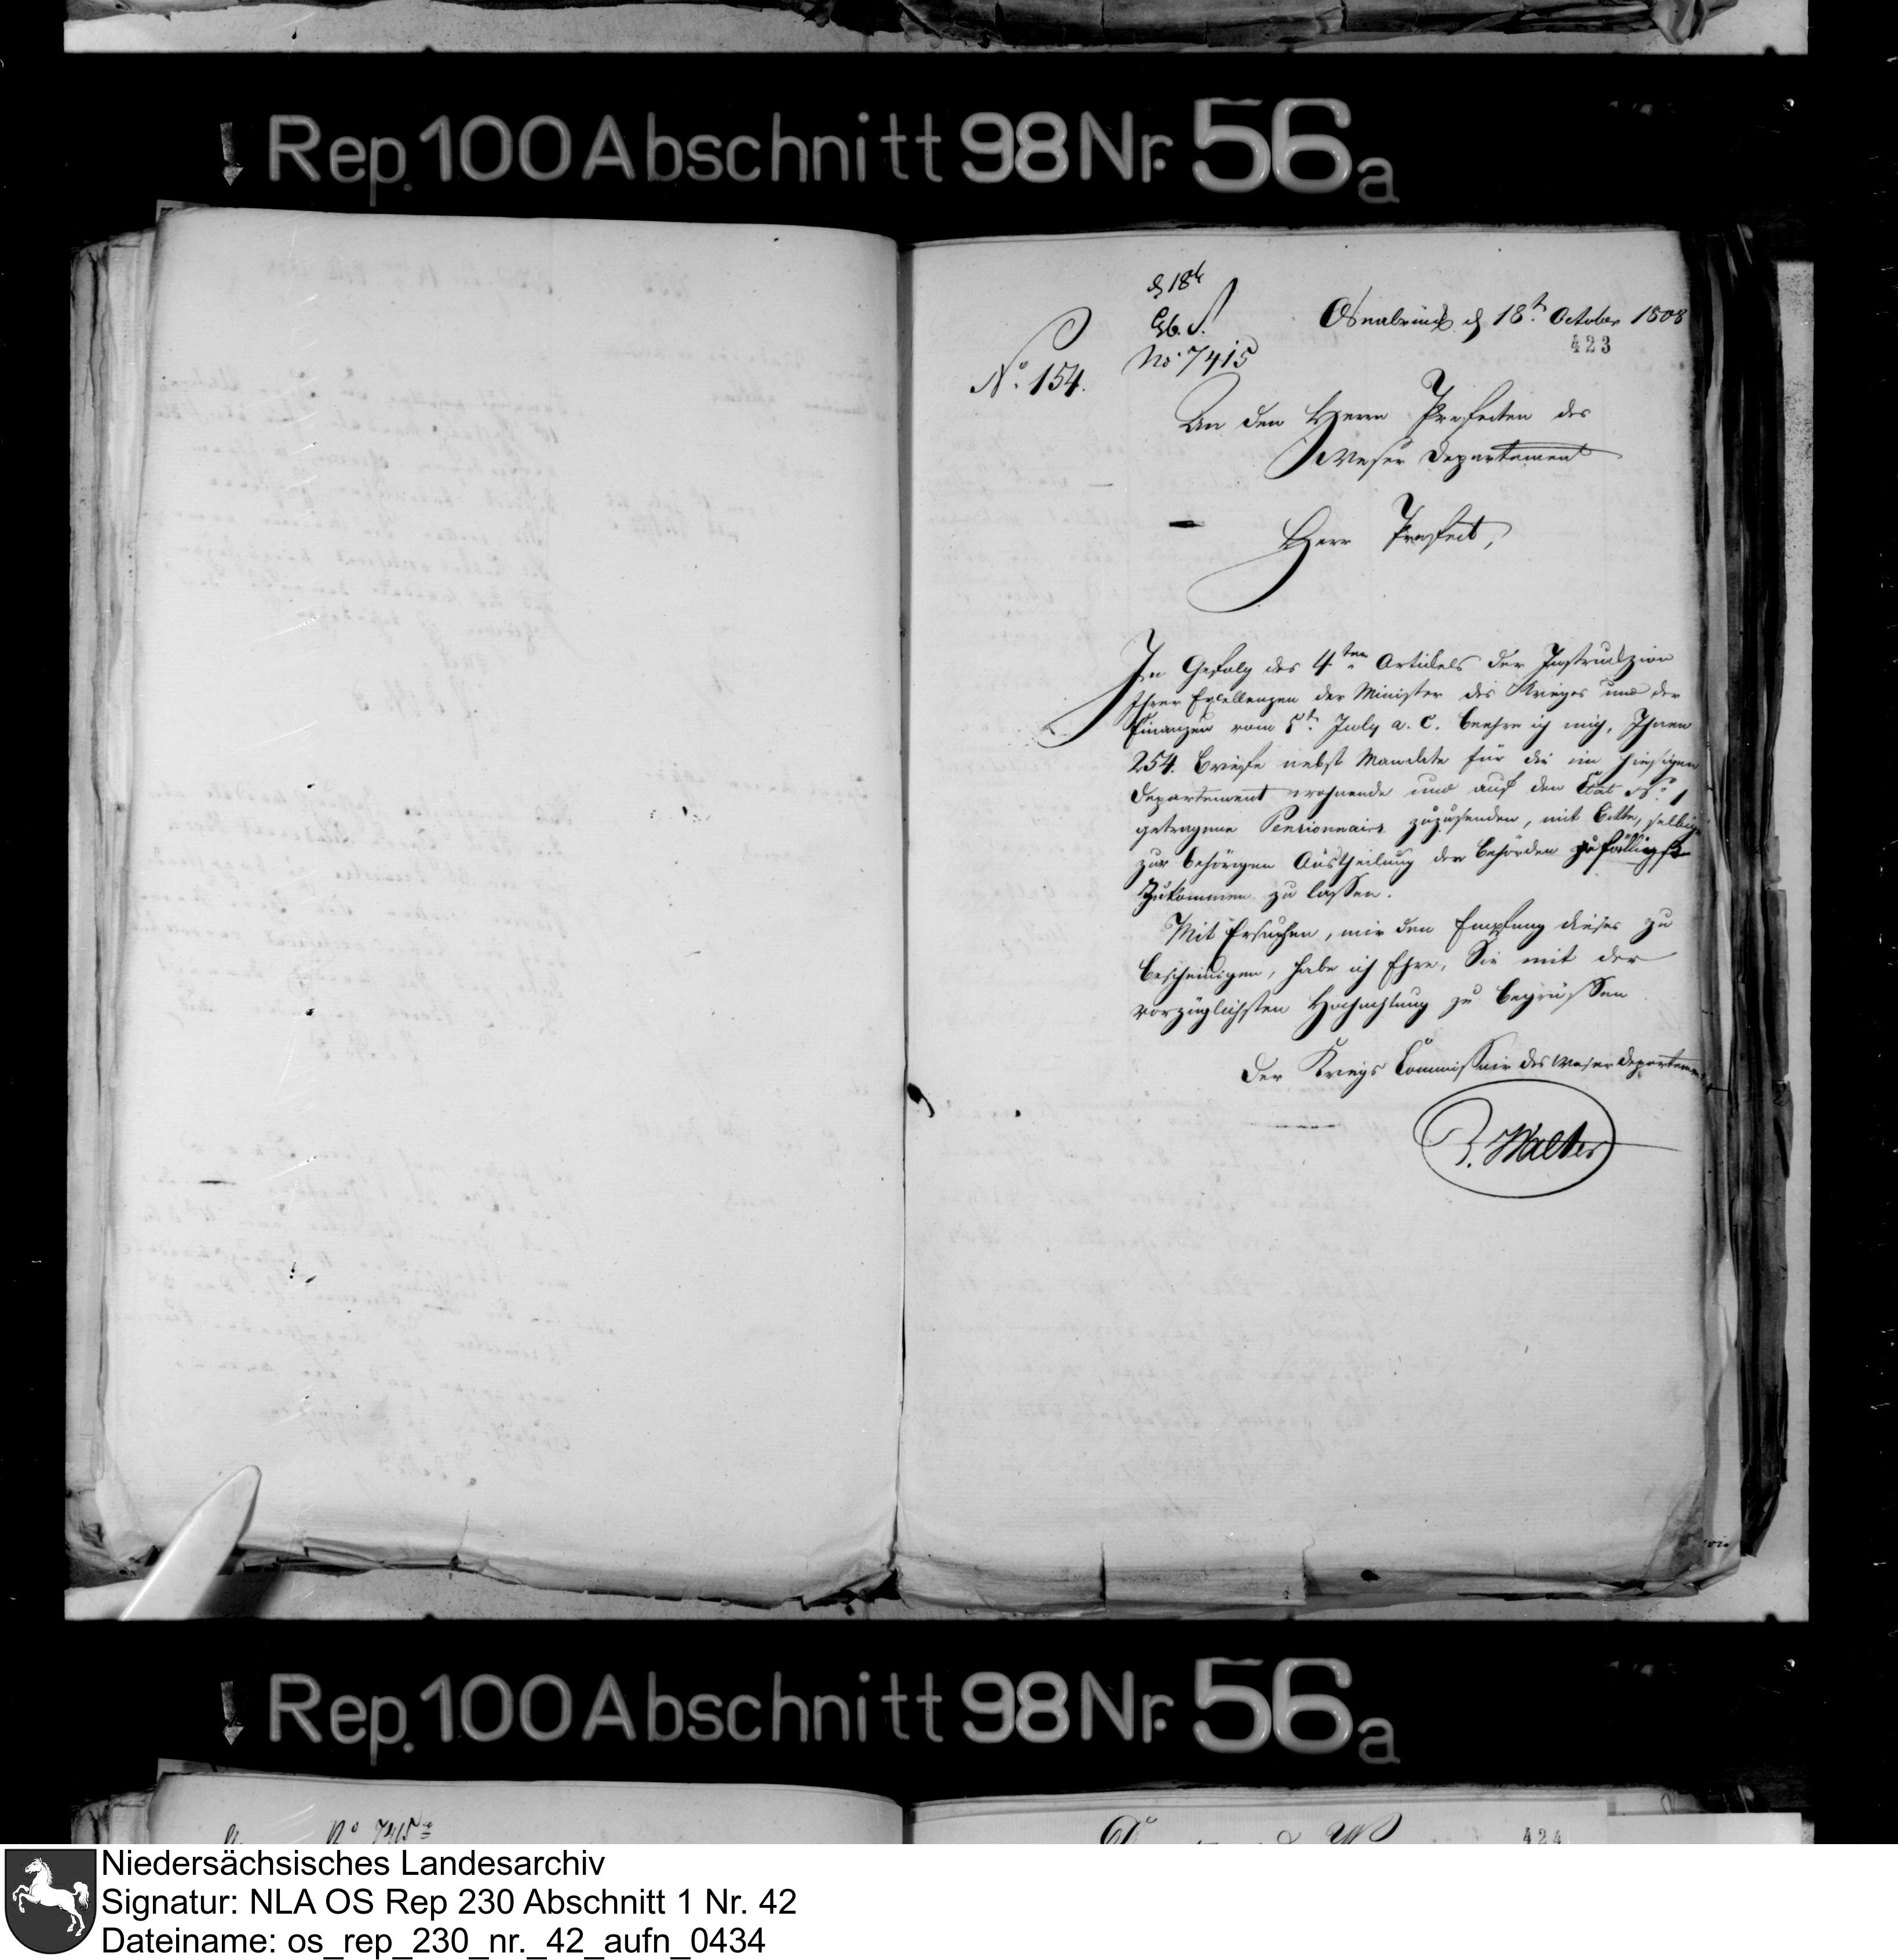 Rep. 100 Abschnitt 98 Nr. 56a
d 18t
Gb. S.
No. 7415
No. 154.
Osnabrück d 18t. October 1808
423
An den Herrn Prefecten des
Weser Departement
Herr Prefect,
In Gefolg des 4ten Artikels der Instrukzion
Ihrer Excellenzen der Minister des Krieges und der
Finanzen vom 5t. July a. c. beehre ich mich, Ihnen
254. Briefe nebst Mandate für die im hiesigen
Departement wohnende und auf den Etat No. 1
getragene Pensionnairs zuzusenden, mit Bitte, selbige
zur behörigen Austheilung den Behörden gefälligst
zukommen zu lassen.
Mit Ersuchen, mir den Empfang dieses zu
bescheinigen, habe ich Ehre, Sie mit der
vorzüglichsten Hochachtung zu begrüssen
Der Kriegs Commissair des Weser Departement
Walter
Rep. 100 Abschnitt 98 Nr. 56a
No 7415
424
Niedersächsisches Landesarchiv
Signatur: NLA OS Rep 230 Abschnitt 1 Nr. 42
Dateiname: os_rep_230_nr._42_aufn_0434